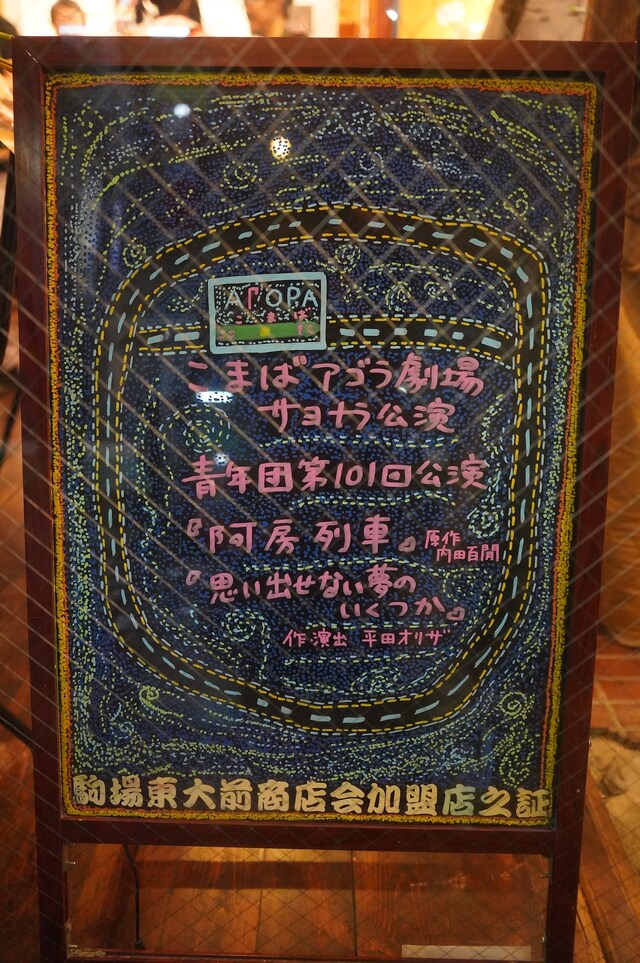 ΑΓΟΡΑ
こまば
こまばアゴラ劇場
サヨナラ公演
青年団第101回公演
『阿房列車』原作
内田百閒
『思い出せない夢の
いくつか』
作・演出 平田オリザ
駒場東大前商店会加盟店之証